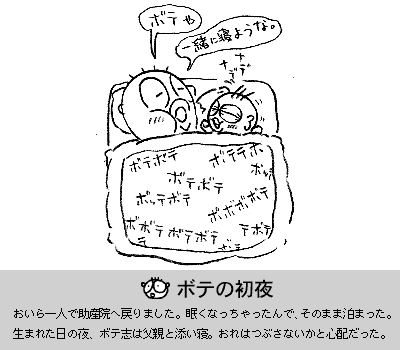 ボテや
一緒に寝ような。
ボテボテ
ボテテホ
ボテボテ
ボッテボテ
ボボボボテ
ボボテボテボテ
テボテ
ボテの初夜
おいら一人で助産院へ戻りました。眠くなっちゃったんで、そのまま泊まった。
生まれた日の夜、ボテ志は父親と添い寝。おれはつぶさないかと心配だった。